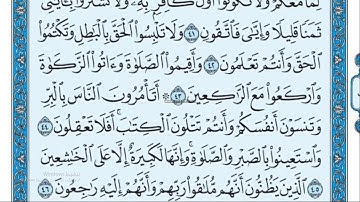 لِّمَا مَعَكُمْ وَلَا تَكُونُوٓا۟ أَوَّلَ كَافِرٍۭ بِهِۦ ۖ وَلَا تَشْتَرُوا۟ بِـَٔايَٰتِى
ثَمَنًا قَلِيلًا وَإِيَّٰىَ فَٱتَّقُونِ ٤١ وَلَا تَلْبِسُوا۟ ٱلْحَقَّ بِٱلْبَٰطِلِ وَتَكْتُمُوا۟
ٱلْحَقَّ وَأَنتُمْ تَعْلَمُونَ ٤٢ وَأَقِيمُوا۟ ٱلصَّلَوٰةَ وَءَاتُوا۟ ٱلزَّكَوٰةَ
وَٱرْكَعُوا۟ مَعَ ٱلرَّٰكِعِينَ ٤٣ أَتَأْمُرُونَ ٱلنَّاسَ بِٱلْبِرِّ
وَتَنسَوْنَ أَنفُسَكُمْ وَأَنتُمْ تَتْلُونَ ٱلْكِتَٰبَ ۚ أَفَلَا تَعْقِلُونَ ٤٤
وَٱسْتَعِينُوا۟ بِٱلصَّبْرِ وَٱلصَّلَوٰةِ ۚ وَإِنَّهَا لَكَبِيرَةٌ إِلَّا عَلَى ٱلْخَٰشِعِينَ
٤٥ ٱلَّذِينَ يَظُنُّونَ أَنَّهُم مُّلَٰقُوا۟ رَبِّهِمْ وَأَنَّهُمْ إِلَيْهِ رَٰجِعُونَ ٤٦